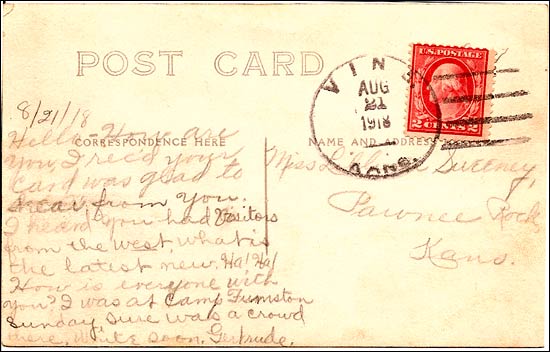 POST CARD
VINE
AUG
21
1918
KANS.
U.S. POSTAGE
2 CENTS 2
8/21/18
CORRESPONDENCE HERE
NAME AND ADDRESS
Hello - How are
you, I rec'd your
card was glad to
hear from you.
I heard you had Visitors
from the west what is
the latest new. Ha! Ha!
How is everyone with
you? I was at Camp Funston
Sunday, sure was a crowd
there. Write soon. Gertrude.
Miss Sweeney,
Pawnee Rock,
Kans.